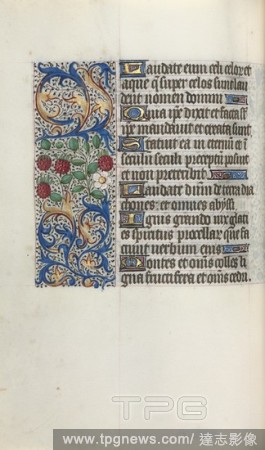 Laudate eum celi celorum et
aque que super celos sunt lau
dent nomen domini
Quia ipse dixit et facta sunt
ipse mandauit et creata sunt
Statuit ea in eternum et in
seculum seculi preceptum posuit
et non preteribit
Laudate dominum de terra dra
chones et omnes abyssi
Ignis grando nix glaci
es spiritus procellarum que fa
ciunt uerbum eius
Montes et omnes colles li
gna fructifera et omnes cedri.
TPG
www.tpgnews.com / 達志影像